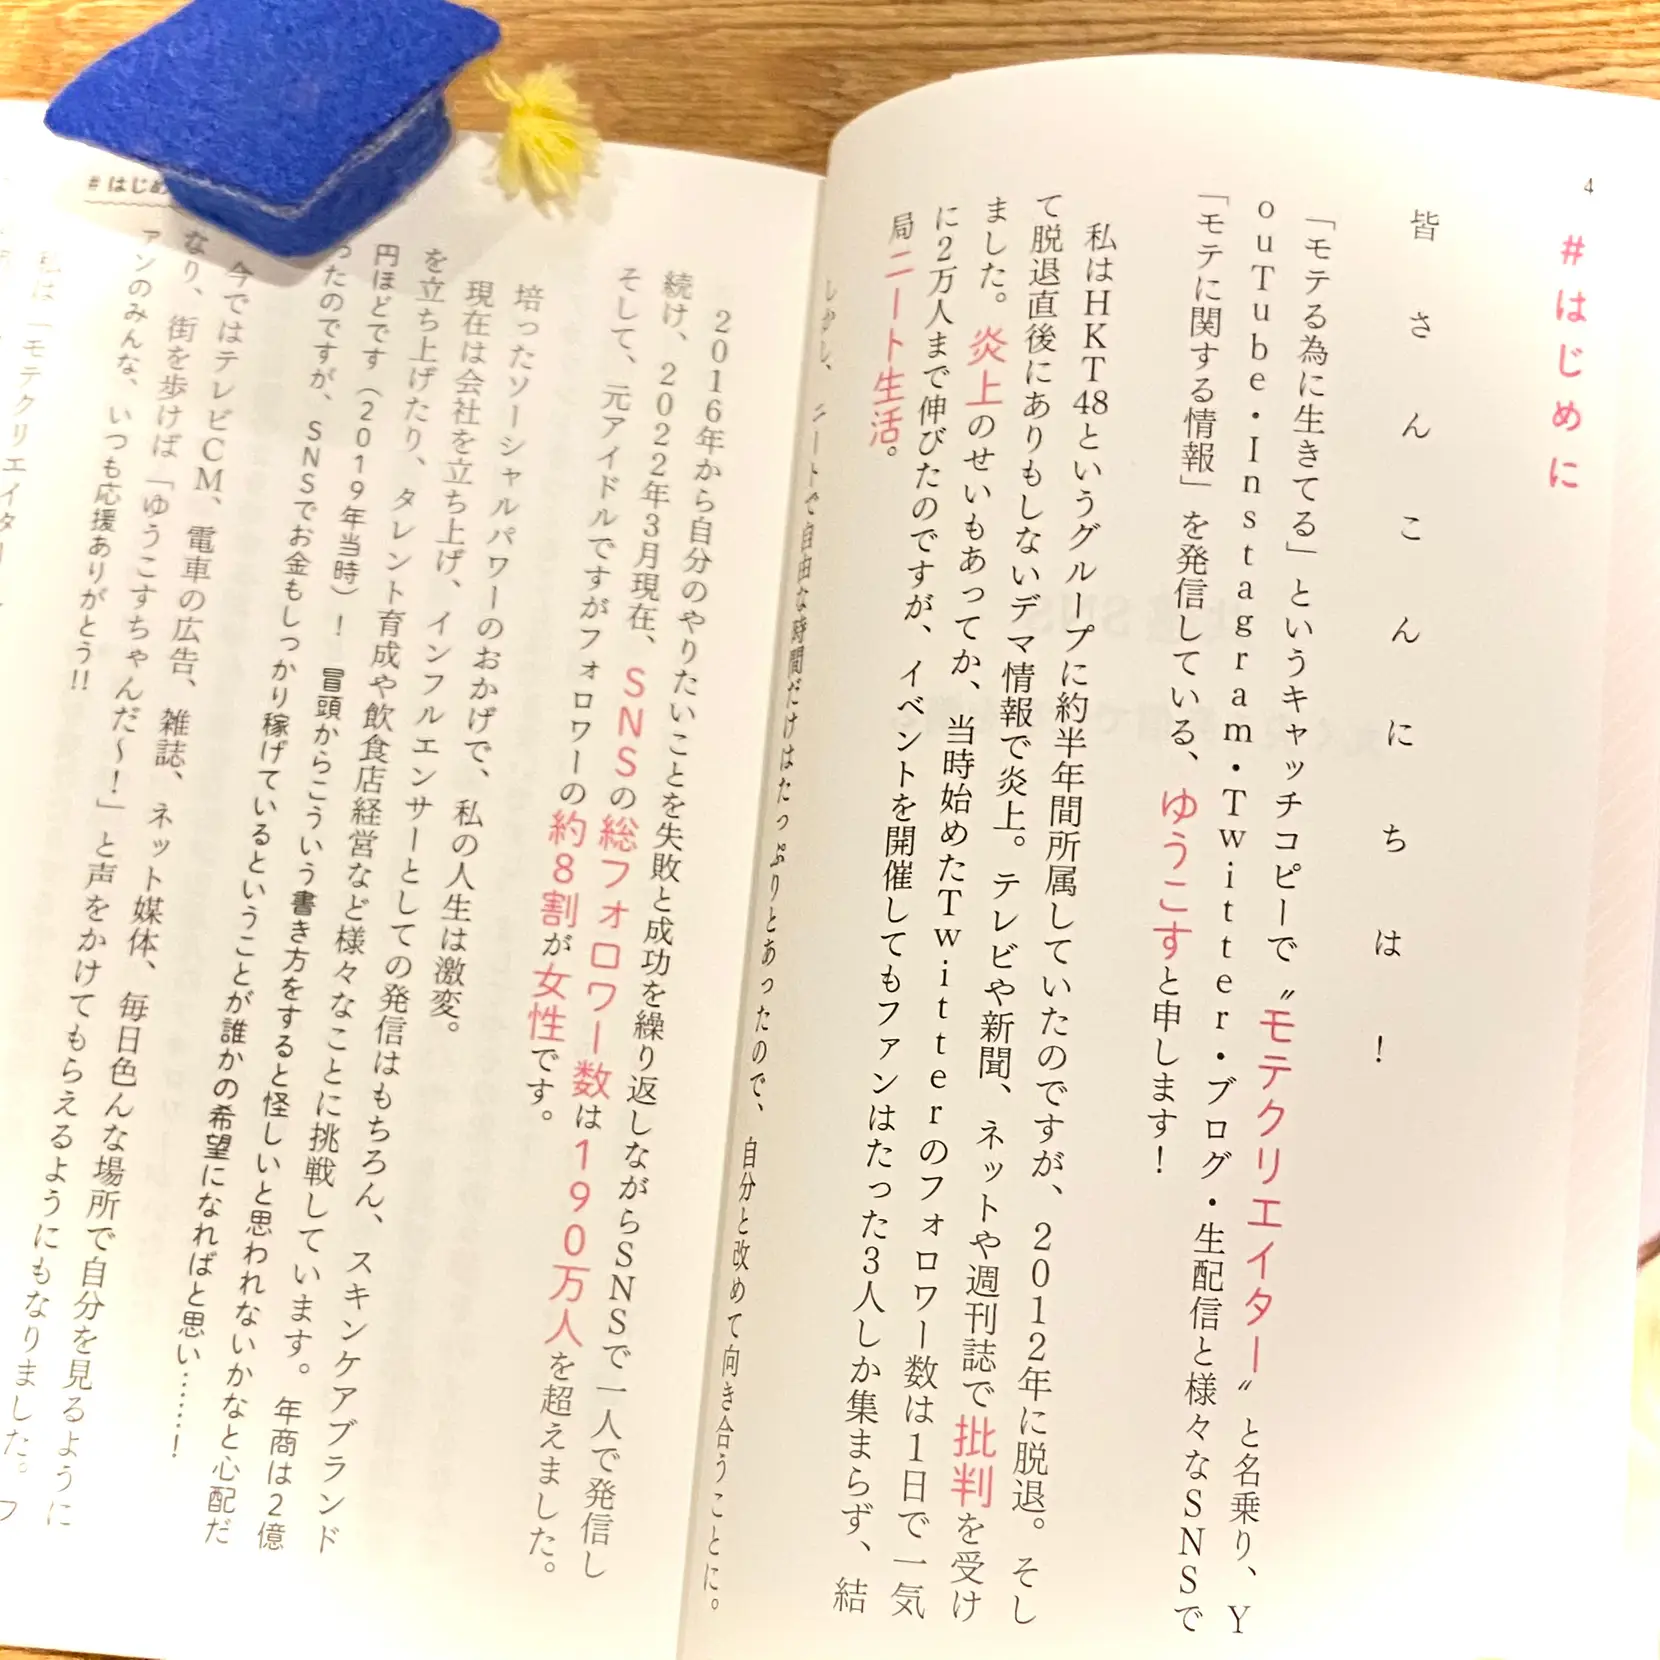 4
#はじめに
皆さんこんにちは!
「モテる為に生きてる」というキャッチコピーで〝モテクリエイター〟と名乗り、Y
ouTube・Instagram・Twitter・ブログ・生配信と様々なSNSで
「モテに関する情報」を発信している、ゆうこすと申します!
私はHKT48というグループに約半年間所属していたのですが、2012年に脱退。そし
て脱退直後にありもしないデマ情報で炎上。テレビや新聞、ネットや週刊誌で批判を受け
ました。炎上のせいもあってか、当時始めたTwitterのフォロワー数は1日で一気
に2万人まで伸びたのですが、イベントを開催してもファンはたった3人しか集まらず、結
局ニート生活。
しかし、ニートで自由な時間だけはたっぷりとあったので、自分と改めて向き合うことに。
#はじめ
2016年から自分のやりたいことを失敗と成功を繰り返しながらSNSで一人で発信し
続け、2022年3月現在、SNSの総フォロワー数は190万人を超えました。
そして、元アイドルですがフォロワーの約8割が女性です。
培ったソーシャルパワーのおかげで、私の人生は激変。
現在は会社を立ち上げ、インフルエンサーとしての発信はもちろん、スキンケアブランド
を立ち上げたり、タレント育成や飲食店経営など様々なことに挑戦しています。年商は2億
円ほどです(2019年当時)! 冒頭からこういう書き方をすると怪しいと思われないかなと心配だ
ったのですが、SNSでお金もしっかり稼げているということが誰かの希望になればと思い……!
今ではテレビCM、電車の広告、雑誌、ネット媒体、毎日色んな場所で自分を見るように
なり、街を歩けば「ゆうこすちゃんだ〜!」と声をかけてもらえるようにもなりました。フ
アンのみんな、いつも応援ありがとう!!
私は「モテクリエイター